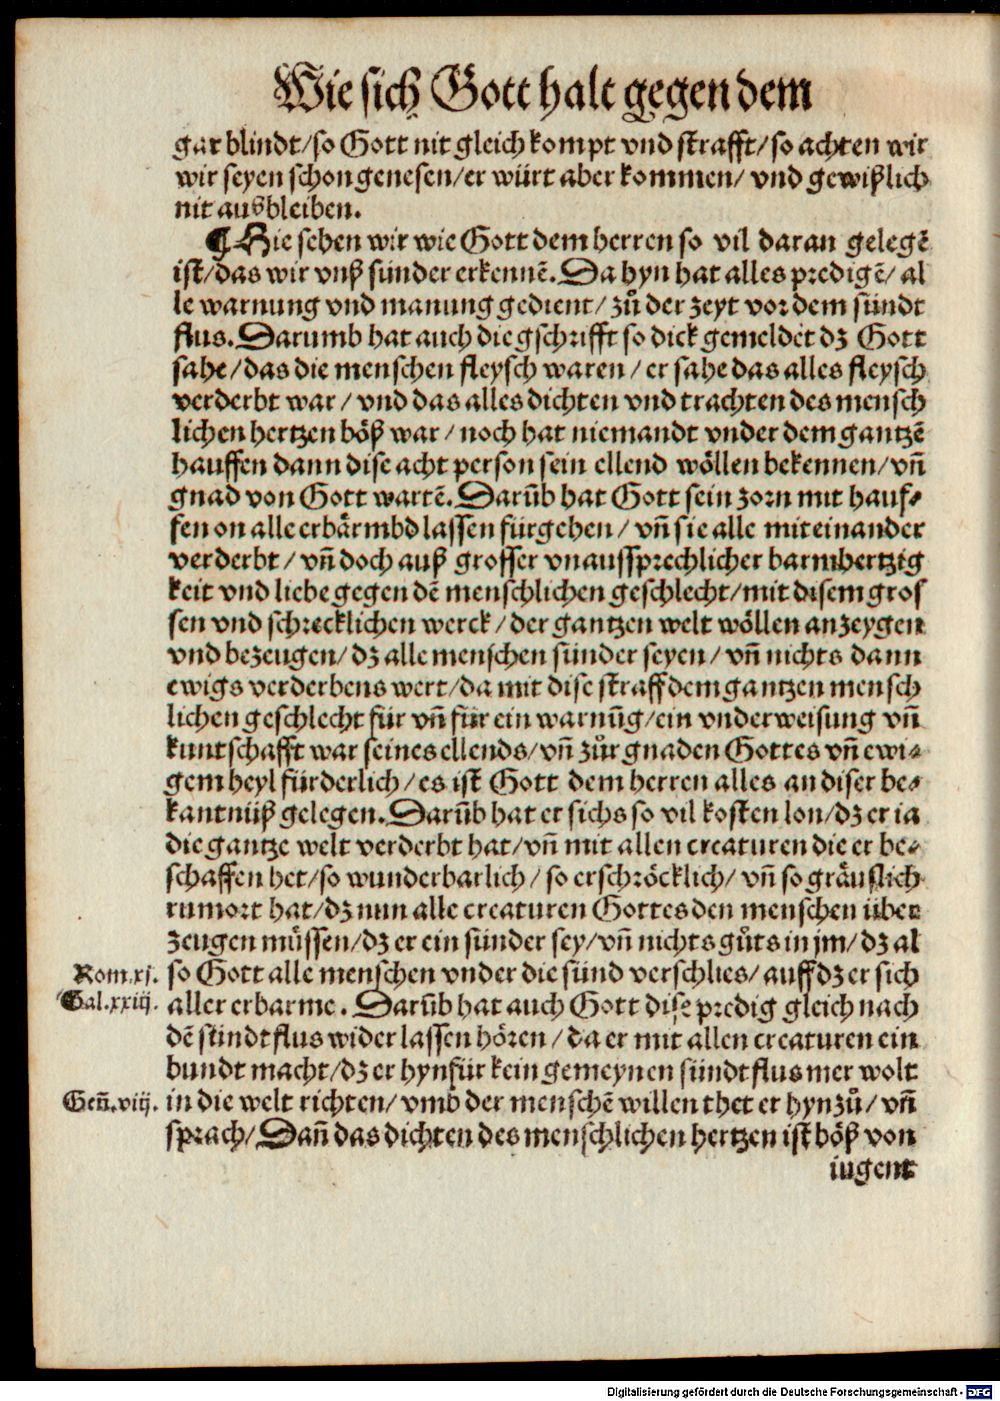 Wie sich Gott halt gegen dem
gar blindt/so Gott nit gleich kompt vnd strafft/so achten wir
wir seyen schon genesen/er würt aber kommen/ vnd gewißlich
nit ausbleiben.
¶ Hie sehen wir wie Gott dem herren so vil daran gelegẽ
ist/das wir vnß sünder erkennẽ. Da hyn hat alles predigẽ/ al
le warnung vnd manung gedient/ zů der zeyt vor dem sündt
flus. Darumb hat auch die gschrifft so dick gemeldet dz Gott
sahe/das die menschen fleysch waren/er sahe das alles fleysch
verderbt war/ vnd das alles dichten vnd trachten des mensch
lichen hertzen böß war/ noch hat niemandt vnder dem gantzẽ
hauffen dann dise acht person sein ellend wöllen bekennen/ vñ
gnad von Gott wartẽ. Darũb hat Gott sein zorn mit hauf⸗
fen on alle erbärmbd lassen fürgehen/ vñ sie alle miteinander
verderbt/ vñ doch auß grosser vnaussprechlicher barmhertzig
keit vnd liebe gegen dẽ menschlichen geschlecht/mit disem gros
sen vnd schrecklichen werck/ der gantzen welt wöllen anzeygen
vnd bezeugen/ dz alle menschen sünder seyen/ vñ nichts dann
ewigs verderbens wert/da mit dise straff dem gantzen mensch
lichen geschlecht für vñ für ein warnũg/ein vnderweisung vñ
kuntschafft war seines ellends/vñ zůr gnaden Gottes vñ ewi⸗
gem heyl fürderlich/ es ist Gott dem herren alles an diser be⸗
kantnüß gelegen. Darũb hat er sichs so vil kosten lon/dz er ia
die gantze welt verderbt hat/vñ mit allen creaturen die er be⸗
schaffen het/so wunderbarlich/ so erschröcklich/ vñ so gräuslich
rumort hat/dz nun alle creaturen Gottes den menschen über
zeugen müssen/dz er ein sünder sey/vñ nichts gůts in jm/ dz al
Rom.xj. so Gott alle menschen vnder die sünd verschlies/ auff dz er sich
Gal.xxiij. aller erbarme. Darũb hat auch Gott dise predig gleich nach
dẽ sündtflus wider lassen hören/ da er mit allen creaturen ein
bundt macht/dz er hynfür kein gemeynen sündtflus mer wolt
Geñ.viij. in die welt richten/ vmb der menschẽ willen thet er hynzů/ vñ
sprach/ Dañ das dichten des menschlichen hertzen ist böß von
iugent
Digitalisierung gefördert durch die Deutsche Forschungsgemeinschaft - DFG